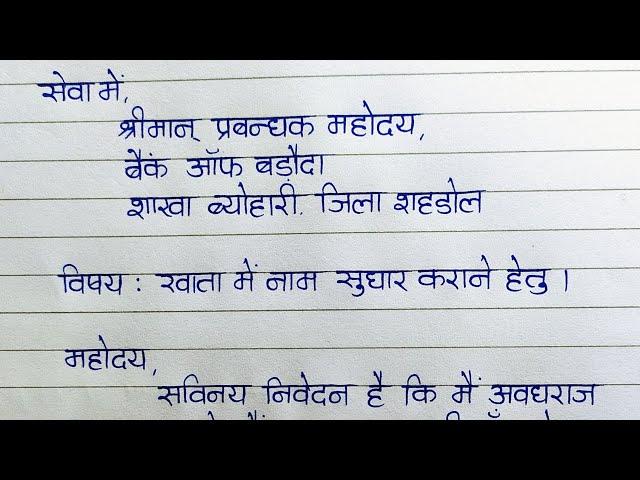 सेवा में,
श्रीमान् प्रबन्धक महोदय,
बैंक ऑफ बड़ौदा
शाखा ब्योहारी. जिला शहडोल
विषय : खाता में नाम सुधार कराने हेतु।
महोदय,
सविनय निवेदन है कि मैं अवधराज